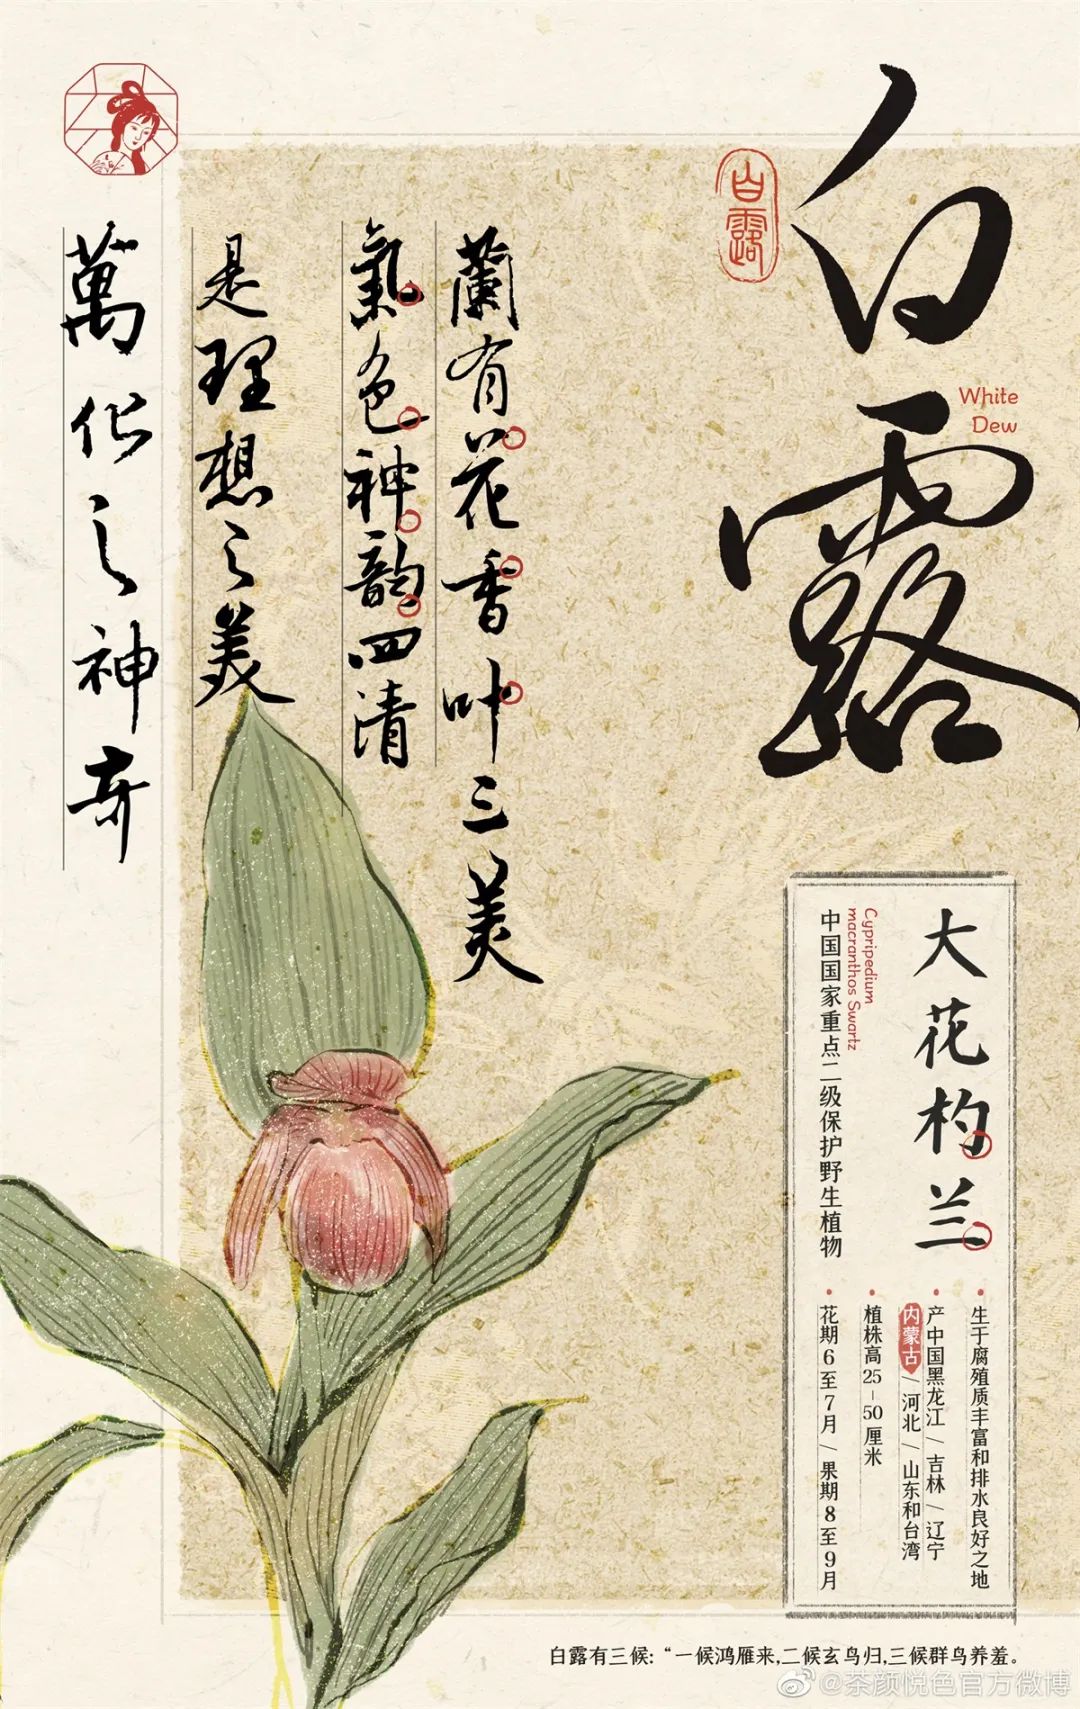 白露
白露
White
Dew
蘭有花香叶三美
氣色神韵四清
是理想之美
萬化之神奇
大花杓兰
Cypripedium
macranthos Swartz
中国国家重点二级保护野生植物
生于腐殖质丰富和排水良好之地
产中国黑龙江/吉林/辽宁
内蒙古/河北/山东和台湾
植株高25-50厘米
花期6至7月/果期8至9月
白露有三候:“一候鸿雁来,二候玄鸟归,三候群鸟养羞。
@茶颜悦色官方微博